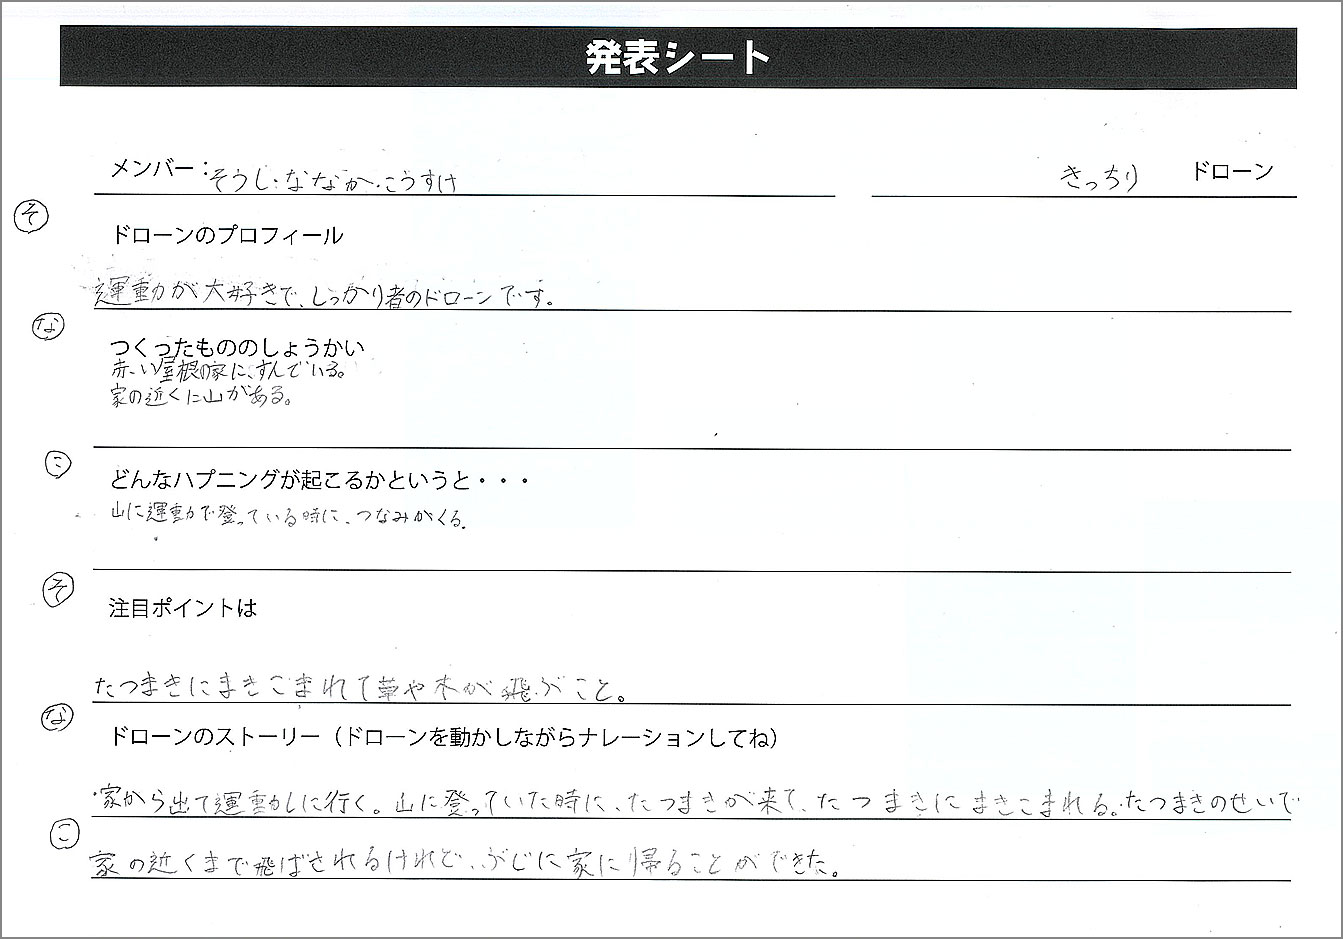 発表シート
メンバー：そうじ・ななか・こうすけ
きっちり ドローン
そ
ドローンのプロフィール
運動が大好きで、しっかり者のドローンです。
な
つくったもののしょうかい
赤い屋根の家に、すんでいる。
家の近くに山がある。
こ
どんなハプニングが起こるかというと・・・
山に運動で登っている時に、つなみがくる。
そ
注目ポイントは
たつまきにまきこまれて草や木が飛ぶこと。
な
ドローンのストーリー（ドローンを動かしながらナレーションしてね）
・家から出て運動しに行く。山に登っていた時に、たつまきが来て、たつまきにまきこまれる。たつまきのせいで
こ
家の近くまで飛ばされるけれど、ぶじに家に帰ることができた。